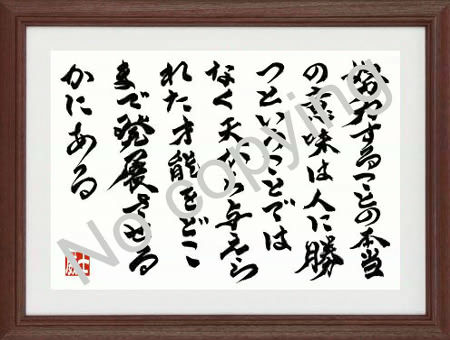 努力することの本当
の意味は人に勝
つということでは
なく天から与えら
れた才能をどこ
まで発展させる
かにある
No copying